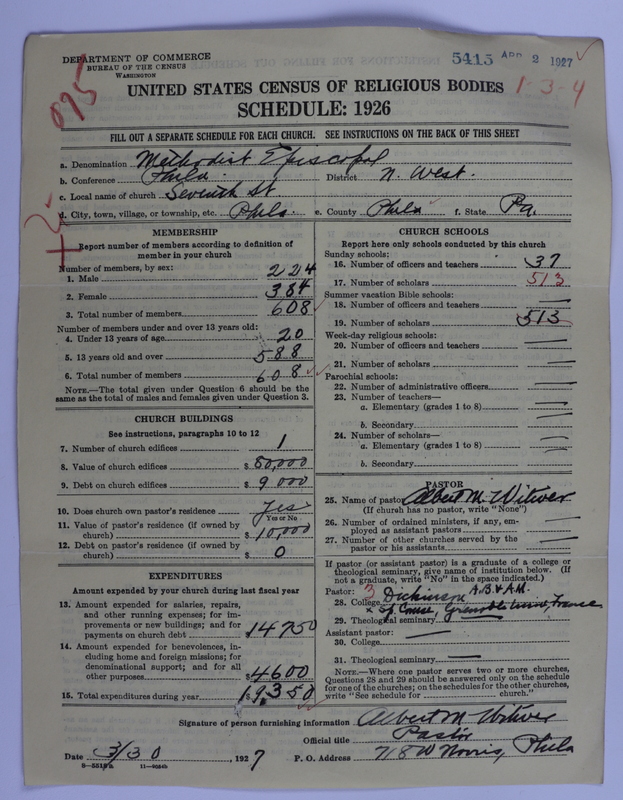 DEPARTMENT OF COMMERCE
BUREAU OF THE CENSUS
WASHINGTON
5415 APR 2 1927
095
UNITED STATES CENSUS OF RELIGIOUS BODIES
1-3-4
SCHEDULE: 1926
FILL OUT A SEPARATE SCHEDULE FOR EACH CHURCH. SEE INSTRUCTIONS ON THE BACK OF THIS SHEET
a. Denomination Methodist Episcopal
b. Conference Phila. District N. West.
c. Local name of church Seventh St
d. City, town, village, or township, etc. Phila e. County Phila f. State Pa.
MEMBERSHIP
Report number of members according to definition of
member in your church
Number of members, by sex:
1. Male 224
2. Female 384
3. Total number of members 608
Number of members under and over 13 years old:
4. Under 13 years of age 20
5. 13 years old and over 588
6. Total number of members 608
NOTE.—The total given under Question 6 should be the
same as the total of males and females given under Question 3.
CHURCH BUILDINGS
See instructions, paragraphs 10 to 12
7. Number of church edifices 1
8. Value of church edifices $ 50,000
9. Debt on church edifices $ 9000
10. Does church own pastor's residence Yes
Yes or No
11. Value of pastor's residence (if owned by
church) $ 10,000
12. Debt on pastor's residence (if owned by
church) $ 0
EXPENDITURES
Amount expended by your church during last fiscal year
13. Amount expended for salaries, repairs,
and other running expenses; for im-
provements or new buildings; and for
payments on church debt $ 14750
14. Amount expended for benevolences, in-
cluding home and foreign missions; for
denominational support; and for all
other purposes $ 4600
15. Total expenditures during year $ 19,350
CHURCH SCHOOLS
Report here only schools conducted by this church
Sunday schools:
16. Number of officers and teachers 37
17. Number of scholars 513
Summer vacation Bible schools:
18. Number of officers and teachers —
19. Number of scholars 513
Week-day religious schools:
20. Number of officers and teachers —
21. Number of scholars —
Parochial schools:
22. Number of administrative officers —
23. Number of teachers—
a. Elementary (grades 1 to 8) —
b. Secondary —
24. Number of scholars—
a. Elementary (grades 1 to 8) —
b. Secondary —
PASTOR
25. Name of pastor Albert M. Witwer
(If church has no pastor, write "None")
26. Number of ordained ministers, if any, em-
ployed as assistant pastors —
27. Number of other churches served by the
pastor or his assistants —
If pastor (or assistant pastor) is a graduate of a college or
theological seminary, give name of institution below. (If
not a graduate, write "No" in the space indicated.)
Pastor: 3
28. College Dickinson A.B. & A.M.
Grenoble Univ. France
29. Theological seminary
Assistant pastor: —
30. College
31. Theological seminary —
NOTE.—Where one pastor serves two or more churches,
Questions 28 and 29 should be answered only on the schedule
for one of the churches; on the schedules for the other churches,
write "See schedule for church."
Signature of person furnishing information Albert M. Witwer
Official title Pastor
Date 3/30, 1927 P. O. Address 718 W Norris, Phila
11-9084b